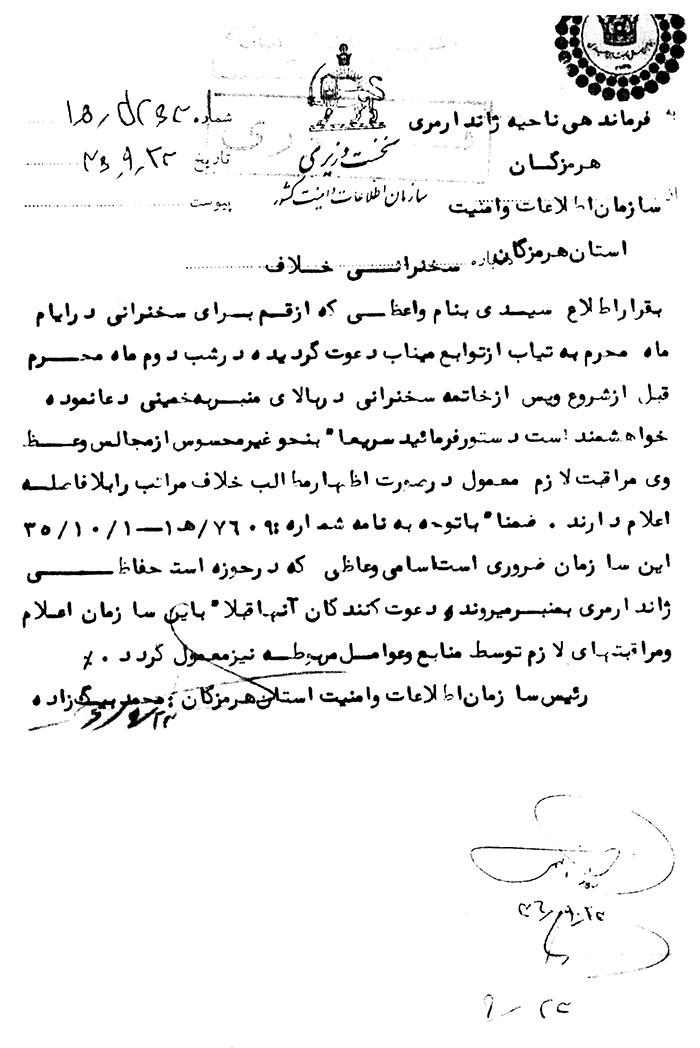 به فرماندهی ناحیه ژاندارمری
هرمزگان
از سازمان اطلاعات وامنیت
استان هرمزگان
نخست وزیری
سازمان اطلاعات و امنیت کشور
شماره
تاریخ ۳۶٫۹٫۲۳
پیوست
درباره سخنرانی خلاف
بقراراطلاع سیدی بنام واعظی که ازقم برای سخنرانی درایام
ماه محرم به تیاب ازتوابع میناب دعوت گردیده درشب دوم ماه محرم
قبل ازشروع وپس ازخاتمه سخنرانی دربالای منبربه‌خمینی دعانموده
خواهشمند است دستورفرمائید سریعا" بنحو غیرمحسوس ازمجالس وعظ
وی مراقبت لازم معمول درصورت اظهارمطالب خلاف مراتب رابلافاصله
اعلام دارند . ضمنا" باتوجه به نامه شماره :۷۶۰۹/ه‍۱—۳۵/۱۰/۱
این سازمان ضروری است‌اسامی وعاظی که درحوزه استحفاظی
ژاندارمری بمنبرمیروند و دعوت کنندگان آنهاقبلا" باین سازمان اعلام
ومراقبتهای لازم توسط منابع وعوامل مربوطه نیزمعمول گردد .٪
رئیس سازمان اطلاعات وامنیت استان هرمزگان : محمدبیگ زاده
۳۶٫۹٫۲۳
۹ - ۲۳